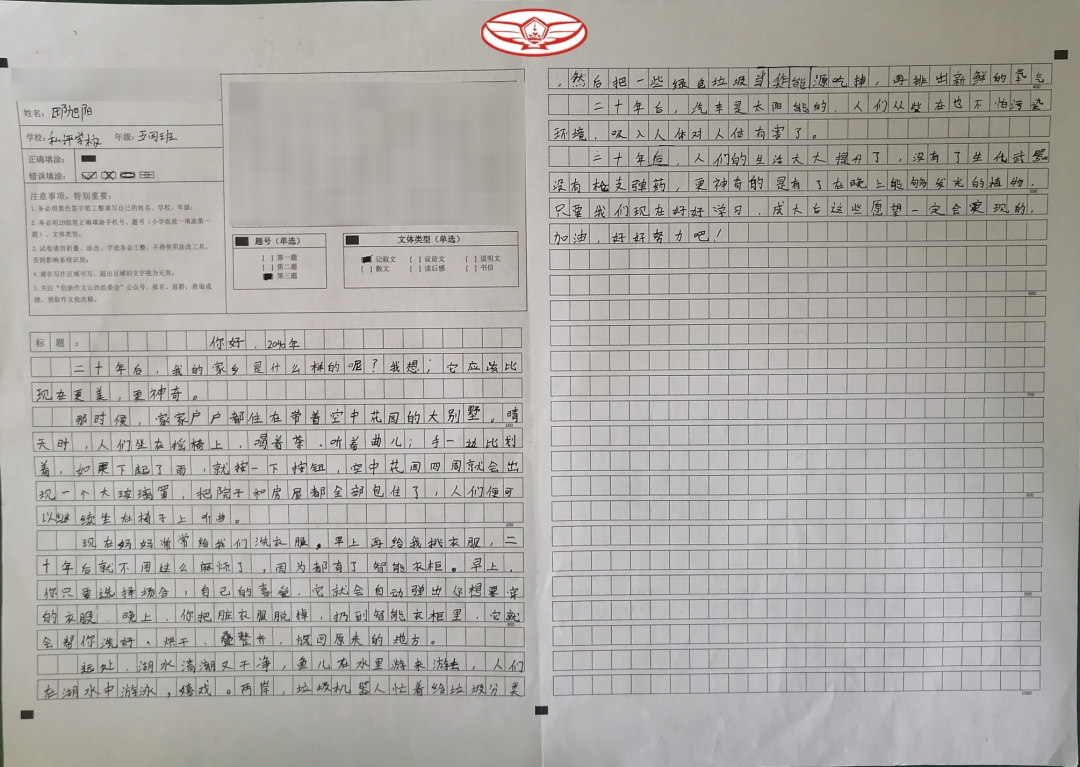 姓名：邵旭阳
学校：私评学校 年级：五(1)班
正确填涂：
错误填涂：
注意事项，特别重要：
1.务必用黑色签字笔工整填写自己的姓名、学校、年级；
2.务必用2B铅笔正确填涂手机号、题号（小学组统一填涂第一题）、文体类型；
3.试卷请勿折叠、涂改，字迹务必工整，不得使用涂改工具，否则影响系统识别；
4.请在写作区域书写，超出区域的文字视为无效；
5.关注“创新作文山西组委会”公众号，报名、进群、查询成绩、领取作文批改稿。
题号（单选）
[ ] 第一题
[ ] 第二题
第三题
文体类型（单选）
记叙文 [ ] 议论文 [ ] 说明文
[ ] 散文 [ ] 读后感 [ ] 书信
标题：你好，2040年
二十年后，我的家乡是什么样的呢？我想；它应该比
现在更美，更神奇。
那时候，家家户户都住在带着空中花园的大别墅。晴
天时，人们坐在摇椅上，喝着茶、听着曲儿；手一边比划
着，如果下起了雨，就按一下按钮，空中花园四周就会出
现一个大玻璃罩，把院子和房屋都全部包住了，人们便可
以继续坐在椅子上听曲。
现在妈妈常常给我们洗衣服，早上再给我挑衣服，二
十年后就不用这么麻烦了，因为都有了智能衣柜。早上，
你只要选择场合，自己的喜爱，它就会自动弹出你想要穿
的衣服，晚上，你把脏衣服脱掉，扔到智能衣柜里，它就
会帮你洗好、烘干、叠整齐，放回原来的地方。
远处，湖水清澈又干净，鱼儿在水里游来游去，人们
在湖水中游泳，嬉戏。两岸，垃圾机器人忙着给垃圾分类
，然后把一些绿色垃圾当作能源吃掉，再排出新鲜的氧气
二十年后，汽车是太阳能的，人们从些在也不怕污染
环境，吸入人体对人体有害了。
二十年后，人们的生活大大提升了，没有了生化武器
没有枪支弹药，更神奇的是有了在晚上能够发光的植物，
只要我们现在好好学习，成大后这些愿望一定会实现的，
加油，好好努力吧！
100
200
300
400
500
600
700
800
900
1000